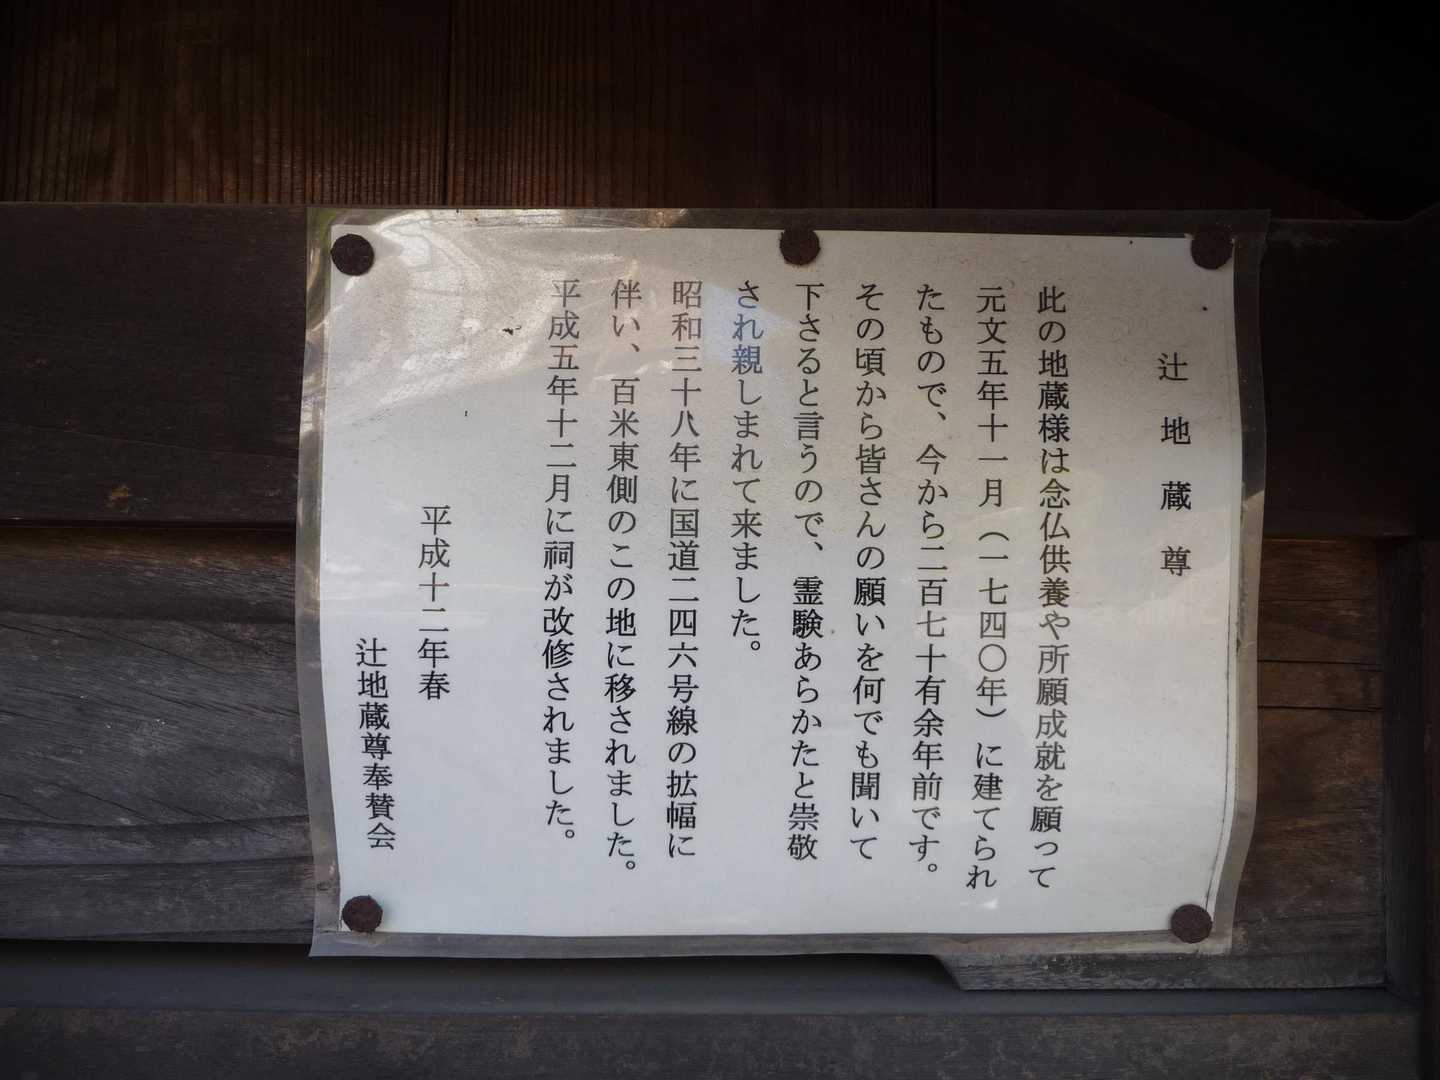 辻地蔵尊
此の地蔵様は念仏供養や所願成就を願って
元文五年十一月（一七四〇年）に建てられ
たもので、今から二百七十有余年前です。
その頃から皆さんの願いを何でも聞いて
下さると言うので、霊験あらかたと崇敬
され親しまれて来ました。
昭和三十八年に国道二四六号線の拡幅に
伴い、百米東側のこの地に移されました。
平成五年十二月に祠が改修されました。
平成十二年春
辻地蔵尊奉賛会